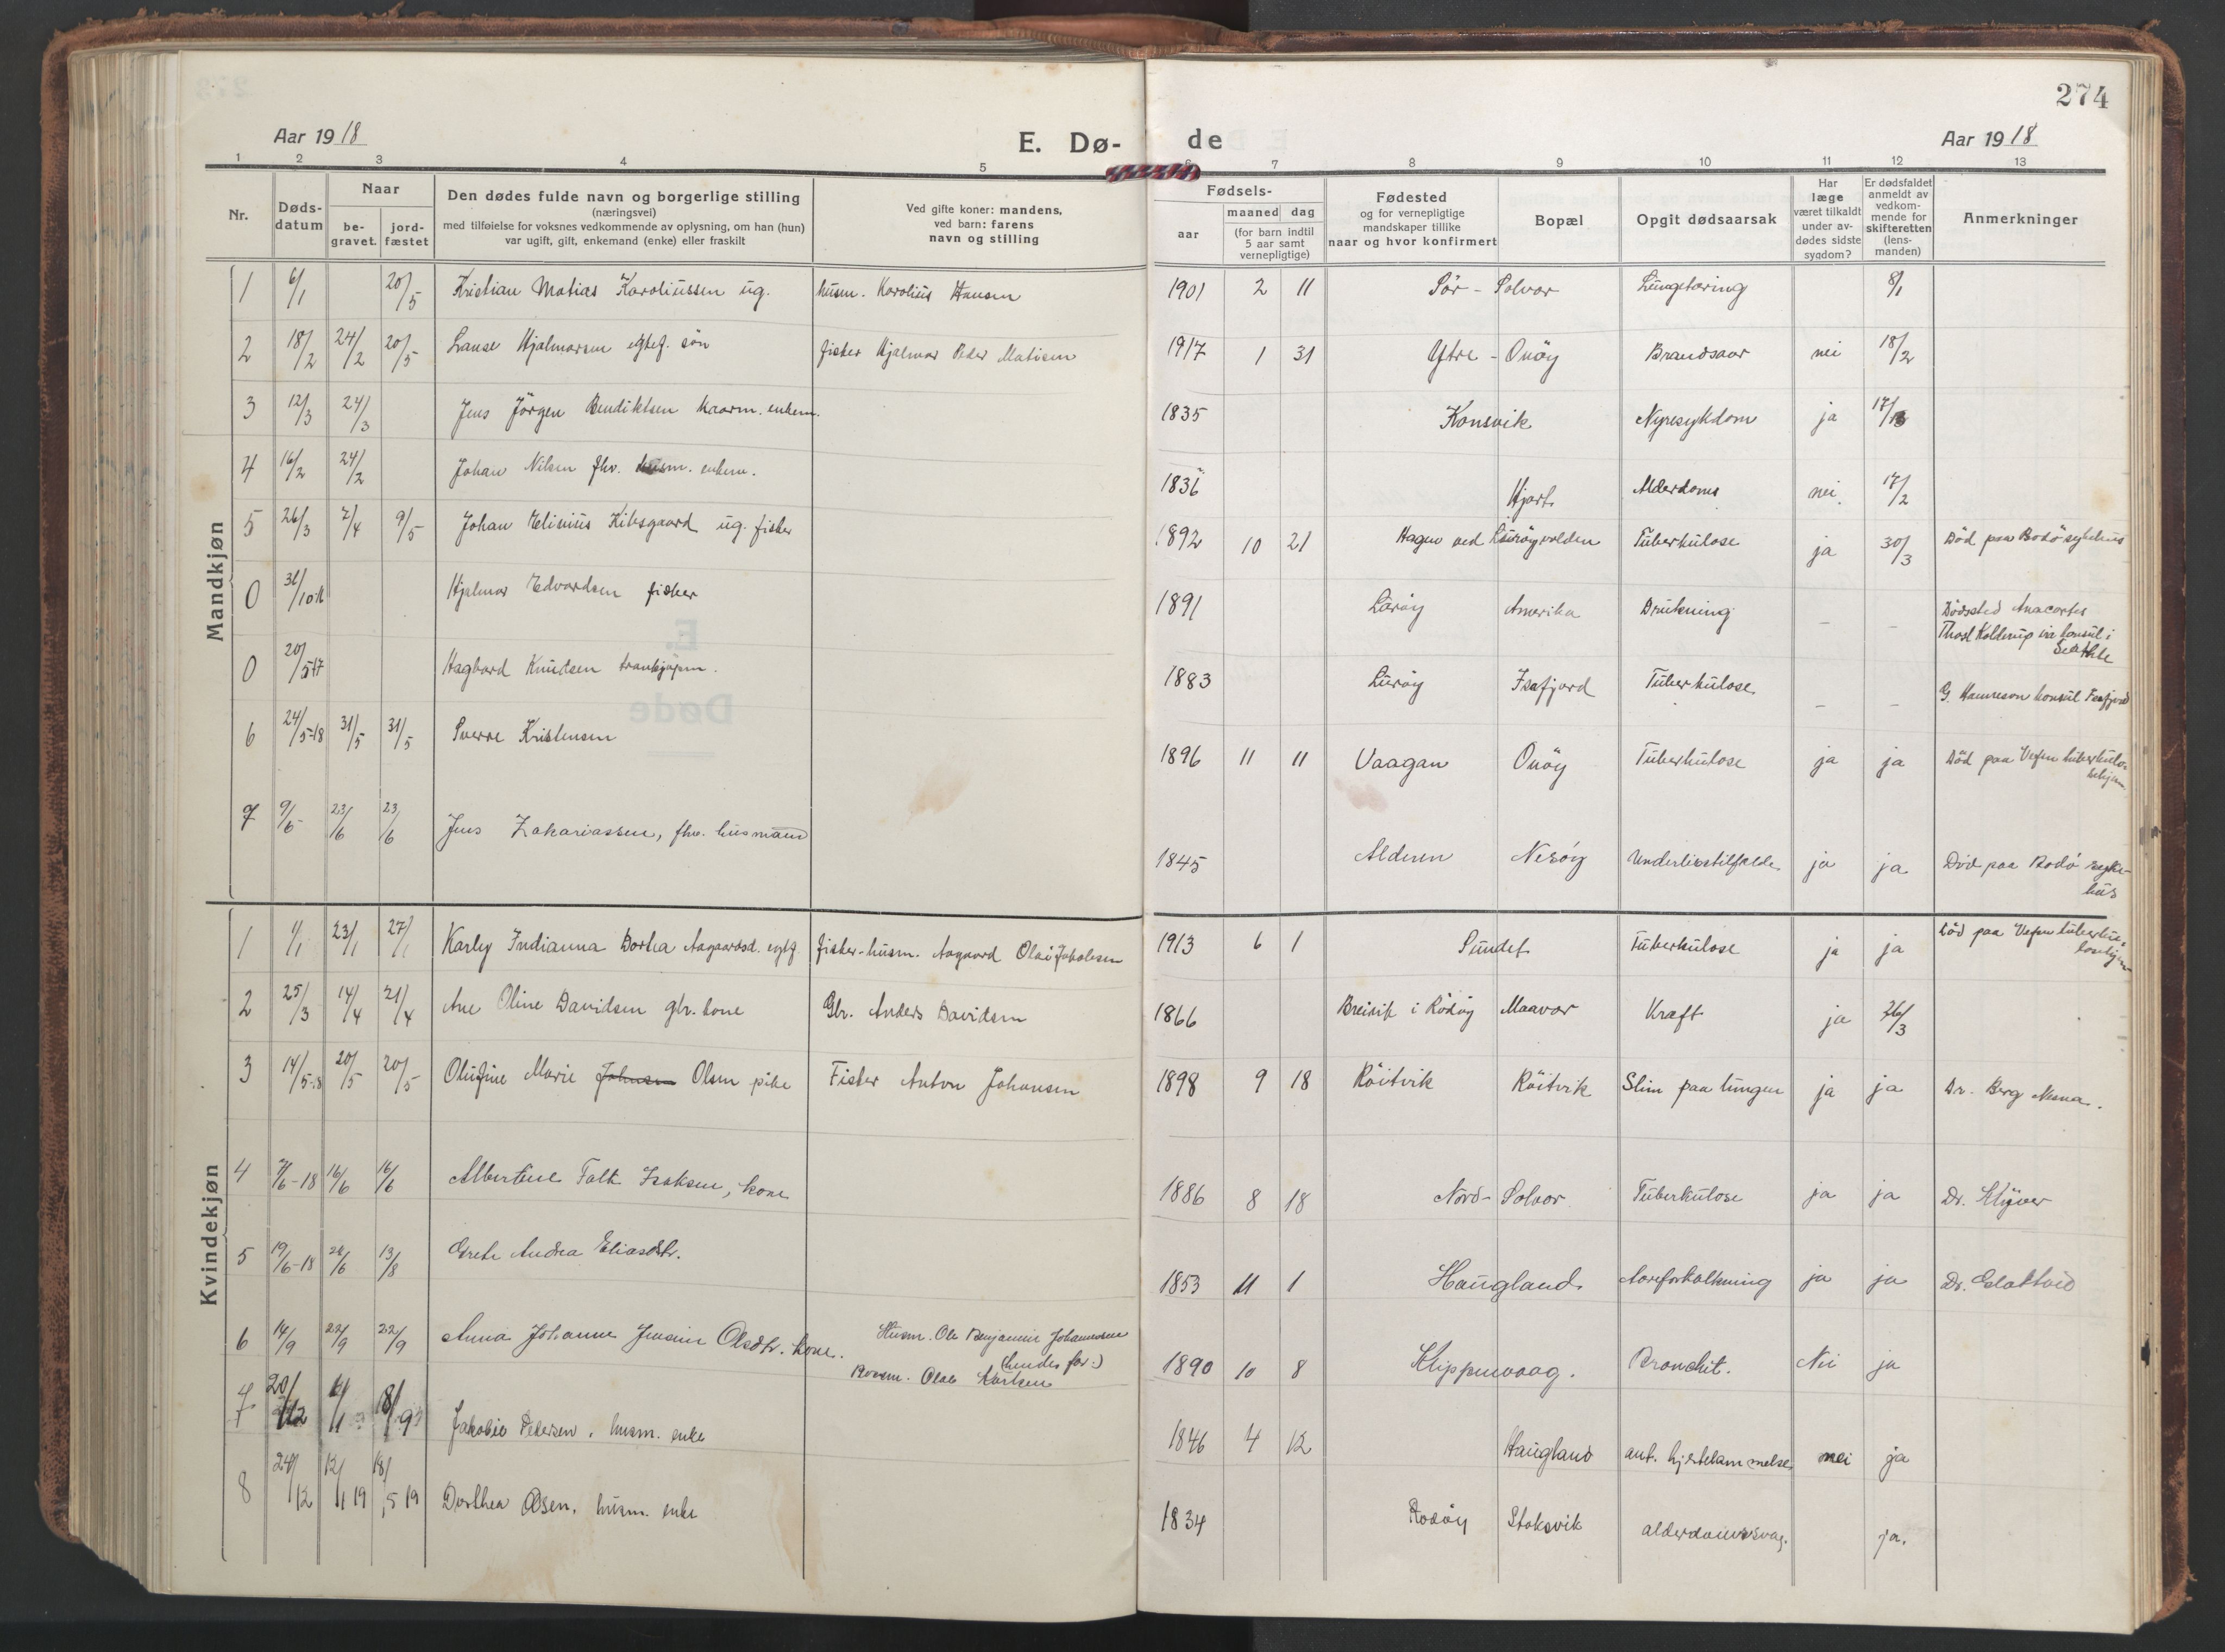 274
Aar 1918
E. Dø-
de
Aar 1918
1 2 3 4 5 6 7 8 9 10 11 12 13
Nr.
Døds-
datum
Naar
be-
gravet.
jord-
fæstet
Den dødes fulde navn og borgerlige stilling
(næringsvei)
med tilføielse for voksnes vedkommende av oplysning, om han (hun)
var ugift, gift, enkemand (enke) eller fraskilt
Ved gifte koner: mandens,
ved barn: farens
navn og stilling
Fødsels-
aar
maaned dag
(for barn indtil
5 aar samt
vernepligtige)
Fødested
og for vernepligtige
mandskaper tillike
naar og hvor konfirmert
Bopæl
Opgit dødsaarsak
Har
læge
været tilkaldt
under av-
dødes sidste
sygdom?
Er dødsfaldet
anmeldt av
vedkom-
mende for
skifteretten
(lens-
manden)
Anmerkninger
Mandkjøn
1 6/1 20/5 Kristian Matias Karoliussen ug. husm. Karolius Hansen 1901 2 11 Sör-Solvær Lungetæring 8/1
2 18/2 24/2 20/5 Hjalmarsen egtef. sön fisker Hjalmar Peder Matisen 1917 1 31 Ytre-Onöy Brandsaar nei 18/2
3 12/3 24/3 Jens Jörgen Bendiktsen kaarm. enkem. 1835 Konsvik Nyresykdom ja 17/3
4 16/2 24/2 Johan Nilsen fhv. husm. enkem. 1836 Hjart. Alderdoms nei. 17/2
5 26/3 7/4 9/5 Johan Elinius Kilsgaard ug. fisker 1892 10 21 Hagen ved Luröyvolden Tuberkulose ja 30/3 Död paa Bodö sykehus
0 31/10-16 Hjalmar Edvardsen fisker 1891 Luröy Amerika Drukning – – Dödssted Anacortes
Kolderup vicekonsul i
Seattle
0 20/5-17 Hagbard Knudsen 1883 Luröy Isafjord Tuberkulose – – G. Hanneson konsul Isafjord
6 24/5-18 31/5 31/5 Sverre Kristensen 1896 11 11 Vaagan Onöy Tuberkulose ja ja Död paa Vefsn tuberkulo-
sehjem
7 9/6 23/6 23/6 Jens Zakariassen, fhv. husmand 1845 Alderen Nesöy Underlivstilfælde ja ja Död paa Bodö syke-
hus
Kvindekjøn
1 1/1 23/1 27/1 Karly Indianna Dortea Aagaardsd. egtf. fisker-husm. Aagaard Olai Jakobsen 1913 6 1 Sundet Tuberkulose ja ja Död paa Vefsn tuberku-
losehjem
2 25/3 14/4 21/4 Ane Oline Davidsen gbr. kone Gbr. Anders Davidsen 1866 Breivik i Rödöy Maavær Kræft ja 26/3
3 14/5-18 20/5 20/5 Olufine Marie Johnsen Olsen pike Fisker Anton Johansen 1898 9 18 Röitvik Röitvik Slim paa lungen ja ja Dr. Berg Nesna.
4 7/6-18 16/6 16/6 Albertine Falk Isaksen, kone 1886 8 18 Nord-Solvær Tuberkulose ja ja Dr. Klyver
5 19/6-18 26/6 13/8 Grete Andrea Eliasdtr. 1853 11 1 Haugland. Aareforkalkning ja ja
6 14/9 22/9 22/9 Anna Johanne Jensine Olsdtr. kone. Husm. Ole Benjamin Johannesen
(hendes far.)
Olav Karlsen 1890 10 8 Klippenvaag. Bronchit. Nei ja
7 20/12 Jakobie Pedersen, husm. enke 1846 4 12 Haugland ant. hjertelammelse nei ja
8 24/12 12/1 19 18/5 19 Dorthea Olsen, husm. enke 1834 Rödöy Stoksvik alderdomssvag. ja.